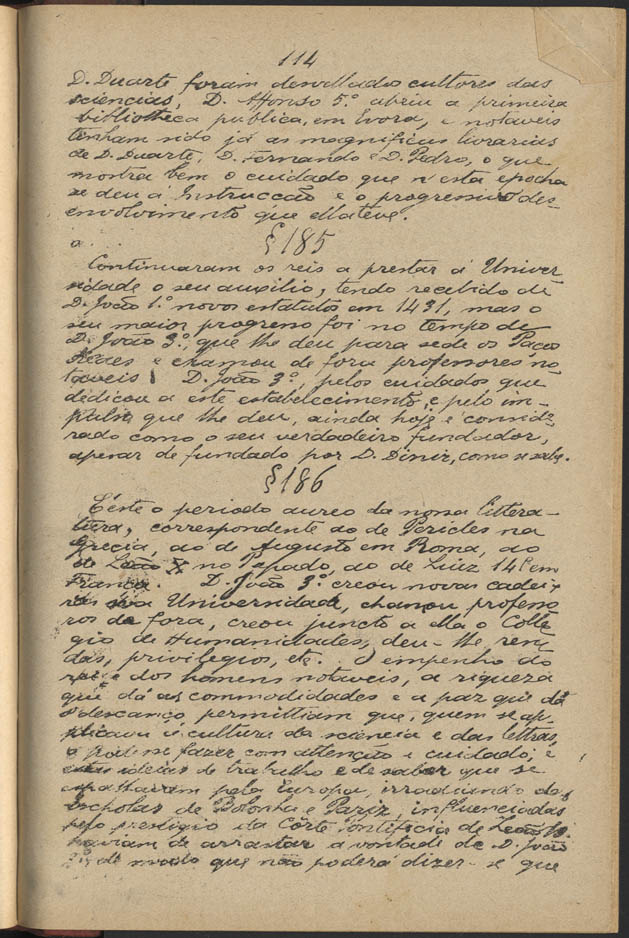 114
D. Duarte foram desvellados cultores das
sciencias, D. Affonso 5.º abriu a primeira
bibliotheca publica, em Evora, e notaveis
tenham sido já as magnificas livrarias
de D. Duarte, D. Fernando e D. Pedro, o que
mostra bem o cuidado que n'esta epocha
se deu á Instrucção e o progressivo des-
envolvimento que ella teve.
§ 185
Continuaram os reis a prestar á Univer-
sidade o seu auxilio, tendo recebido de
D. João 1.º novos estatutos em 1431, mas o
seu maior progresso foi no tempo de
D. João 3.º, que lhe deu para sede os Paços
Reaes e chamou de fora professores no-
taveis. D. João 3.º, pelos cuidados que
dedicou a este estabelecimento, e pelo im-
pulso que lhe deu, ainda hoje é conside-
rado como o seu verdadeiro fundador,
apezar de fundado por D. Diniz, como se sabe.
§ 186
É este o periodo aureo da nossa littera-
tura, correspondente ao de Pericles na
Grecia, ao de Augusto em Roma, ao
de Leão X no Papado, ao de Luiz 14º em
França. D. João 3º creou novas cadei-
ras na Universidade, chamou professo-
ros de fora, creou juncto a ella o Colle-
gio de Humanidades, deu-lhe ren-
das, privilegios, etc. O empenho do
rei e dos homens notaveis, a riqueza
que dá as commodidades e a paz que dá
o descanço permittiam que, quem se ap-
plicava á cultura da sciencia e das lettras,
o podesse fazer com attenção e cuidado; e
estas ideias de trabalho e de saber que se
espalhavam pela Europa, irradiando das
Escholas de Bolonha e Pariz, influenciadas
pelo prestigio da Côrte Pontificia de Leão 10
haviam de arrastar a vontade de D. João
3º, de modo que não poderá dizer-se que